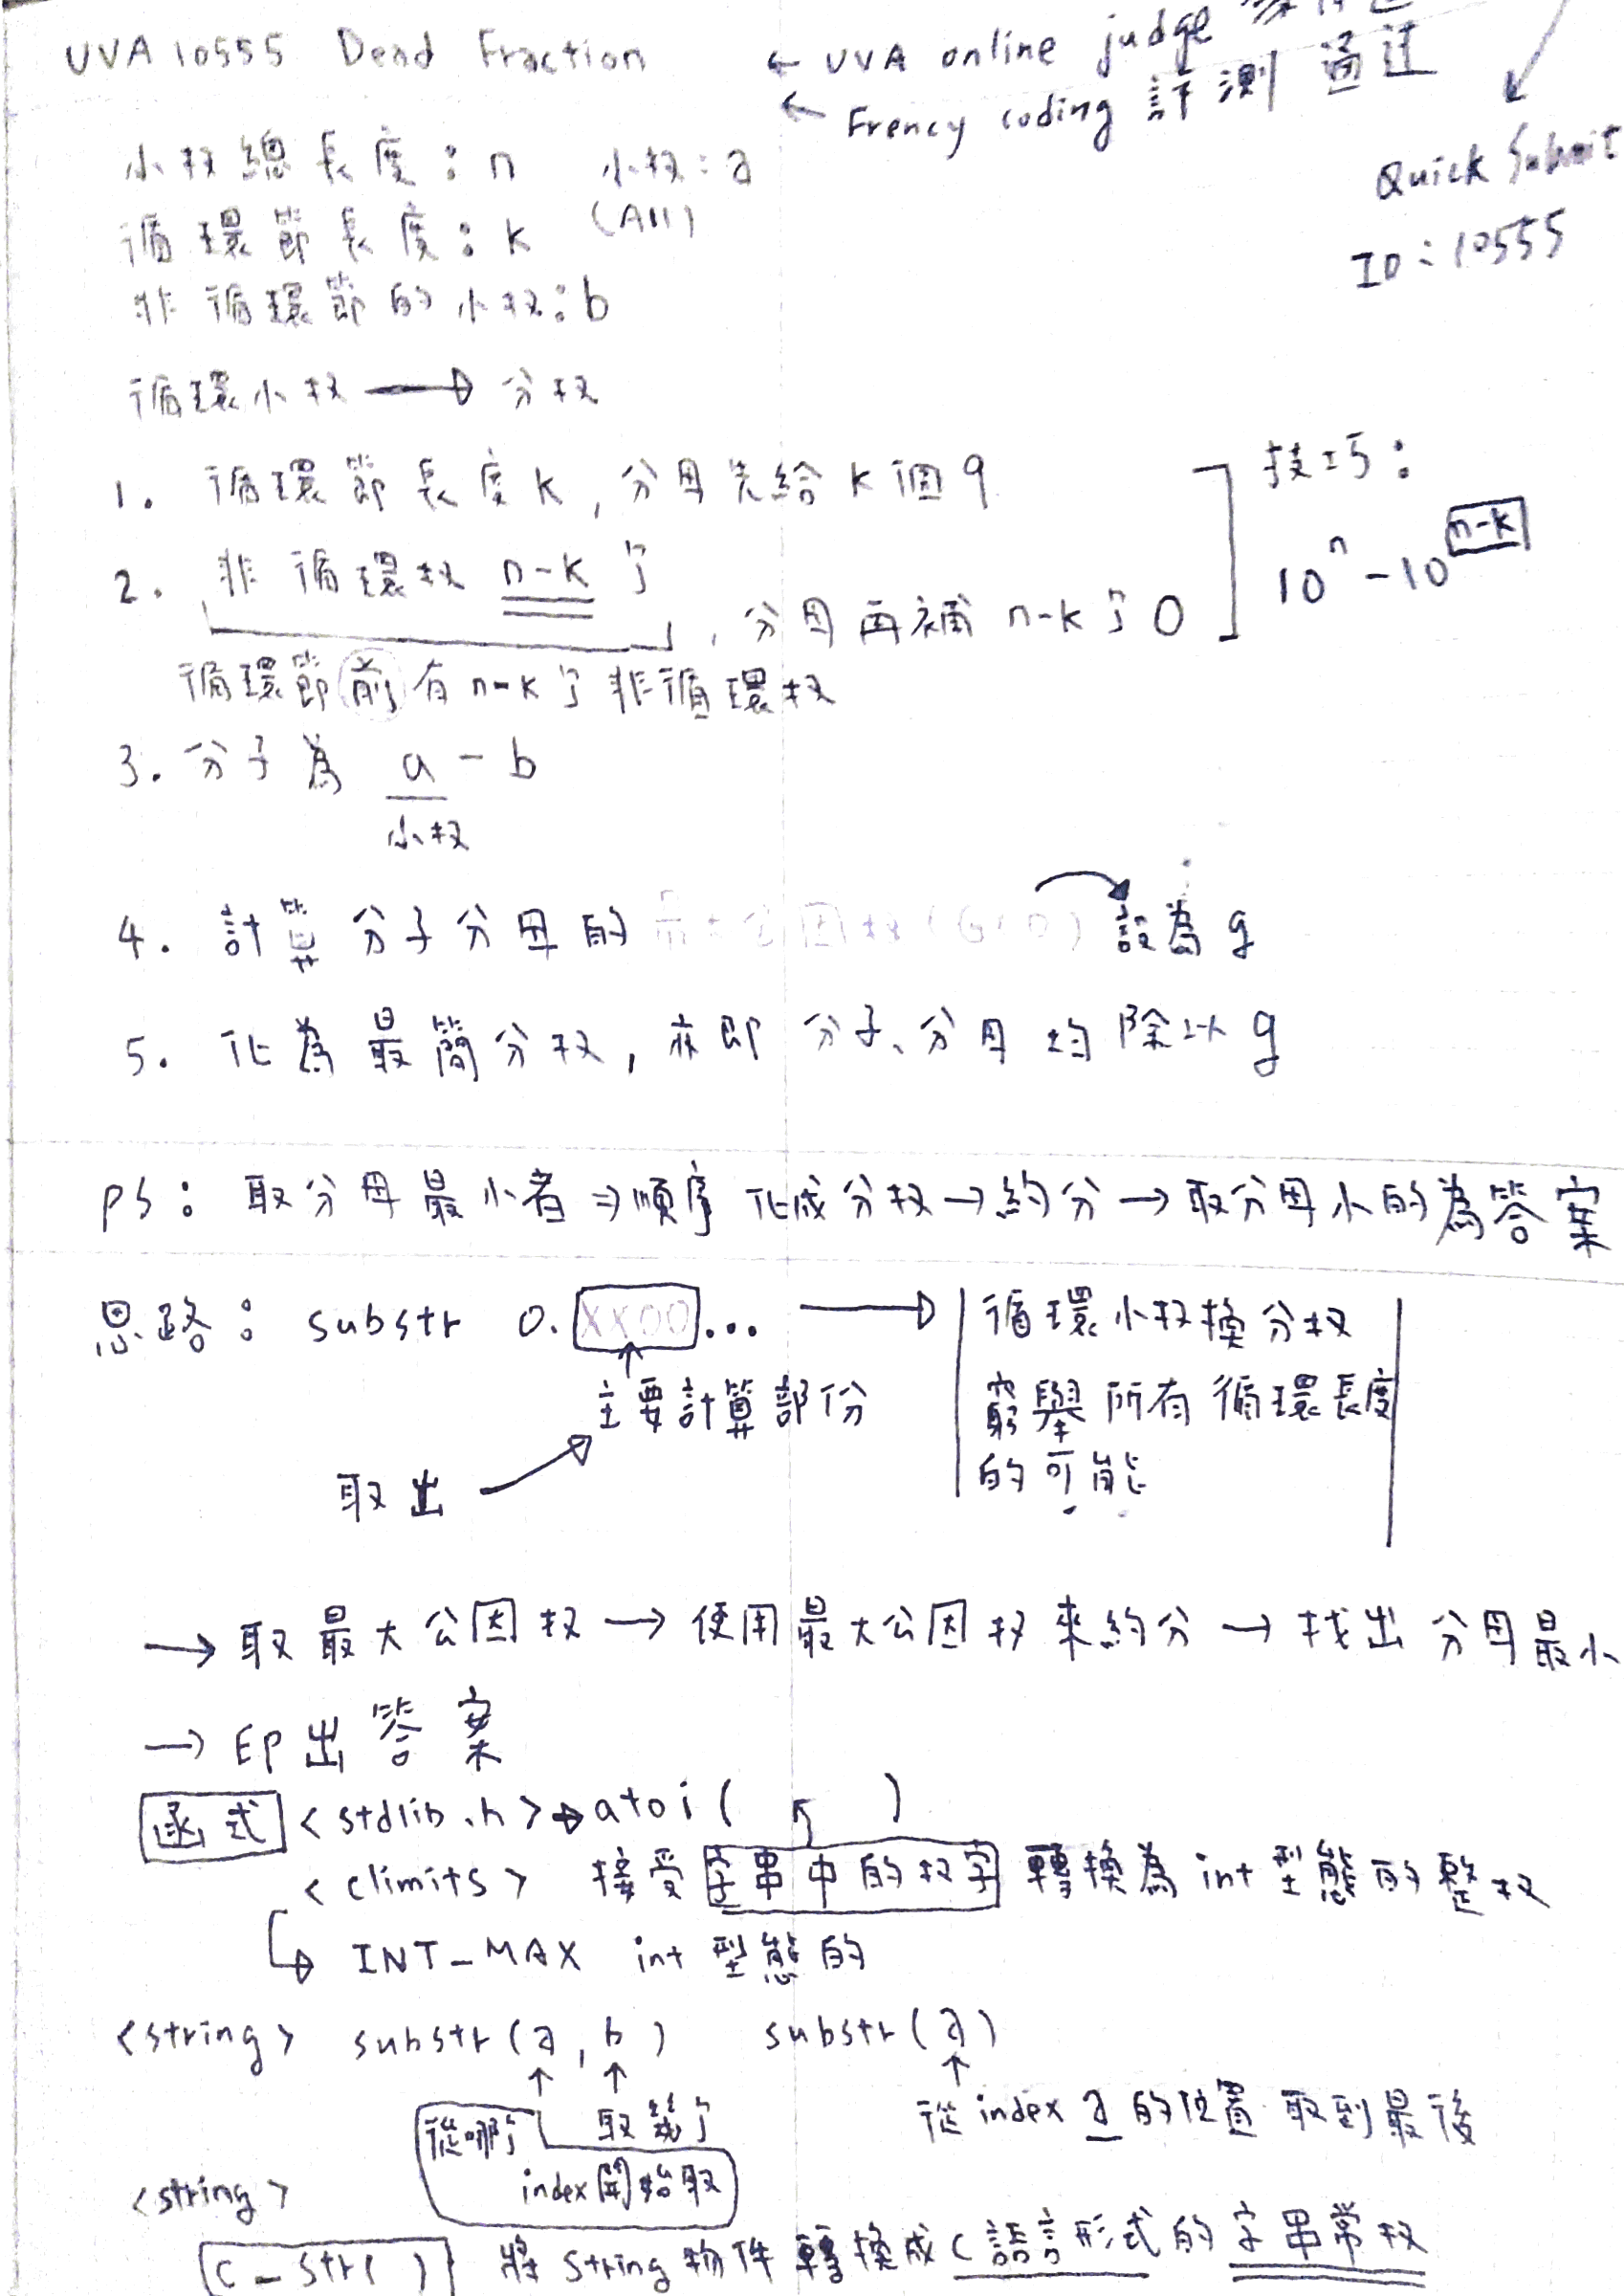 UVA 10555 Dead Fraction
← UVA online judge
← Frency coding 評測 通过
Quick Submit
ID:10555
小数總長度:n 小数:a
(All)
循環節長度:k
非循環節的小数:b
循環小数 → 分数
1. 循環節長度k,分母先給k個9
2. 非循環数 n-k 个
,分母再補 n-k 个 0
技巧:
10^n - 10^{n-k}
循環節前有n-k个非循環数
3. 分子為 a - b
小数
4. 計算分子分母的最大公因数(GCD) 設為 g
5. 化為最簡分数,亦即 分子、分母均除以g
PS: 取分母最小者 ⇒ 順序 化成分数 → 約分 → 取分母小的為答案
思路: substr 0.XX00... →
循環小数換分数
窮舉所有循環長度
的可能
主要計算部份
取出
→ 取最大公因数 → 使用最大公因数來約分 → 找出 分母最小
→ 印出答案
函式 <stdlib.h> → atoi( )
<climits> 接受 字串中的数字 轉換為 int 型態的整数
INT_MAX int 型態的
<string> substr(a,b) substr(a)
從哪个 取幾个
index開始取
從 index a 的位置 取到最後
<string>
c_str( ) 將 string 物件 轉換成 C語言形式的字串常数